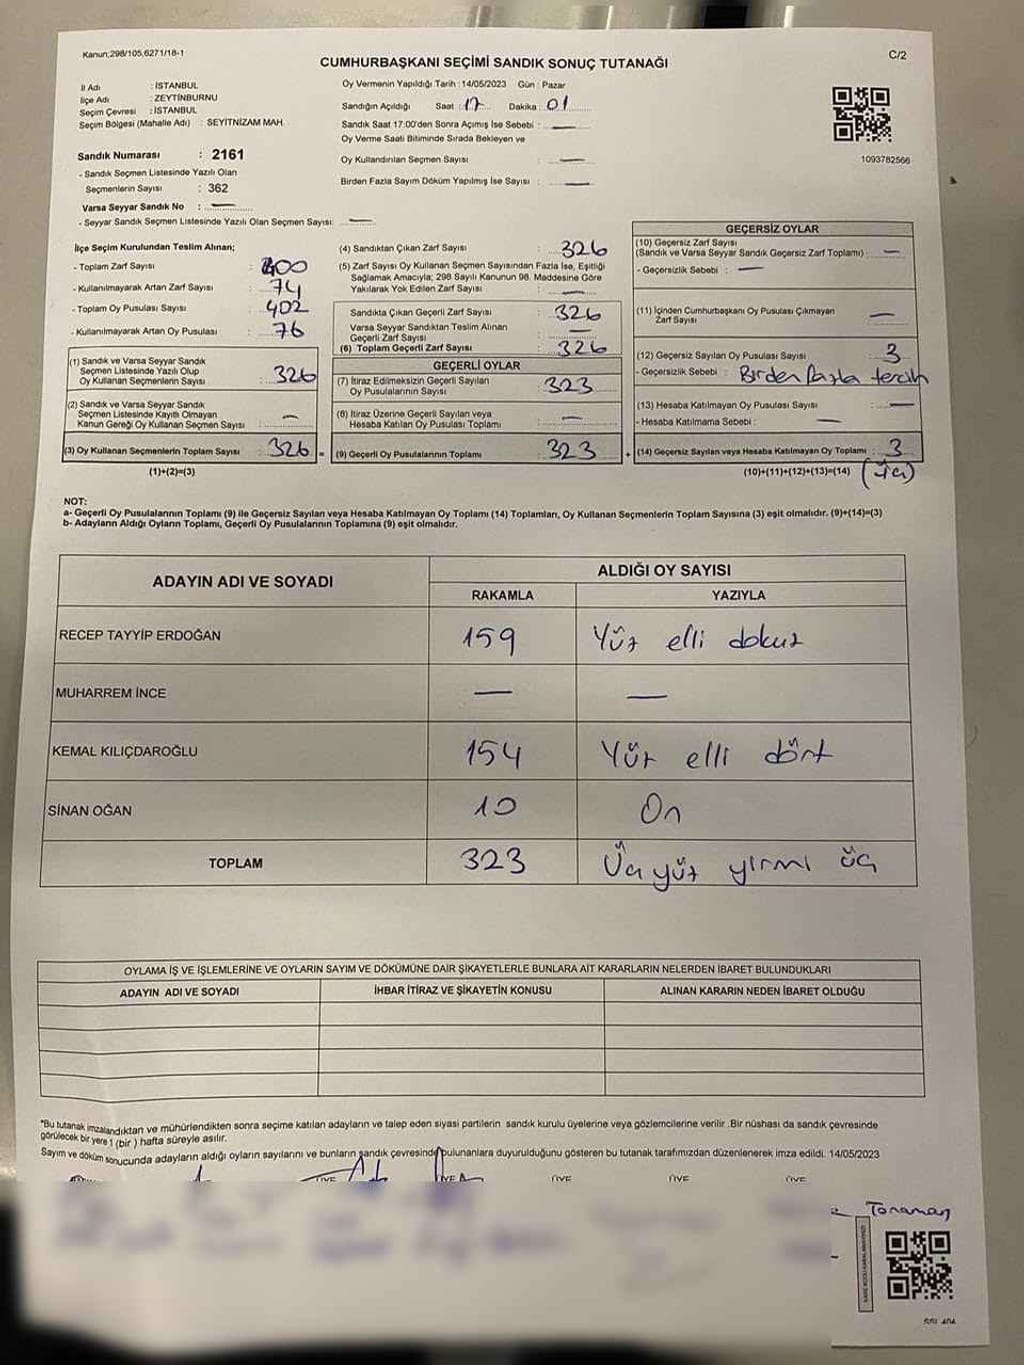 Kanun;298/105,6271/18-1
C/2
CUMHURBAŞKANI SEÇİMİ SANDIK SONUÇ TUTANAĞI
İl Adı : İSTANBUL
İlçe Adı : ZEYTİNBURNU
Seçim Çevresi : İSTANBUL
Seçim Bölgesi (Mahalle Adı) : SEYİTNİZAM MAH.
Sandık Numarası : 2161
- Sandık Seçmen Listesinde Yazılı Olan
Seçmenlerin Sayısı : 362
Varsa Seyyar Sandık No : —
- Seyyar Sandık Seçmen Listesinde Yazılı Olan Seçmen Sayısı: —
Oy Vermenin Yapıldığı Tarih : 14/05/2023 Gün : Pazar
Sandığın Açıldığı Saat : 17 Dakika : 01
Sandık Saat 17:00'den Sonra Açımış İse Sebebi : —
Oy Verme Saati Bitiminde Sırada Bekleyen ve
Oy Kullandırılan Seçmen Sayısı : —
Birden Fazla Sayım Döküm Yapılmış İse Sayısı : —
1093782566
İlçe Seçim Kurulundan Teslim Alınan;
- Toplam Zarf Sayısı : 400
- Kullanılmayarak Artan Zarf Sayısı : 74
- Toplam Oy Pusulası Sayısı : 402
- Kullanılmayarak Artan Oy Pusulası : 76
(1) Sandık ve Varsa Seyyar Sandık
Seçmen Listesinde Yazılı Olup
Oy Kullanan Seçmenlerin Sayısı : 326
(2) Sandık ve Varsa Seyyar Sandık
Seçmen Listesinde Kayıtlı Olmayan
Kanun Gereği Oy Kullanan Seçmen Sayısı : —
(3) Oy Kullanan Seçmenlerin Toplam Sayısı : 326 =
(1)+(2)=(3)
(4) Sandıktan Çıkan Zarf Sayısı : 326
(5) Zarf Sayısı Oy Kullanan Seçmen Sayısından Fazla İse, Eşitliği
Sağlamak Amacıyla; 298 Sayılı Kanunun 98. Maddesine Göre
Yakılarak Yok Edilen Zarf Sayısı : —
Sandıkta Çıkan Geçerli Zarf Sayısı : 326
Varsa Seyyar Sandıktan Teslim Alınan
Geçerli Zarf Sayısı : —
(6) Toplam Geçerli Zarf Sayısı : 326
GEÇERLİ OYLAR
(7) İtiraz Edilmeksizin Geçerli Sayılan
Oy Pusulalarının Sayısı : 323
(8) İtiraz Üzerine Geçerli Sayılan veya
Hesaba Katılan Oy Pusulası Toplamı : —
(9) Geçerli Oy Pusulalarının Toplamı : 323 +
GEÇERSİZ OYLAR
(10) Geçersiz Zarf Sayısı
(Sandık ve Varsa Seyyar Sandık Geçersiz Zarf Toplamı) : —
- Geçersizlik Sebebi : —
(11) İçinden Cumhurbaşkanı Oy Pusulası Çıkmayan
Zarf Sayısı : —
(12) Geçersiz Sayılan Oy Pusulası Sayısı : 3
- Geçersizlik Sebebi : Birden fazla tercih
(13) Hesaba Katılmayan Oy Pusulası Sayısı : —
- Hesaba Katılmama Sebebi : —
(14) Geçersiz Sayılan veya Hesaba Katılmayan Oy Toplamı : 3
(10)+(11)+(12)+(13)=(14) (üç)
NOT:
a- Geçerli Oy Pusulalarının Toplamı (9) ile Geçersiz Sayılan veya Hesaba Katılmayan Oy Toplamı (14) Toplamları, Oy Kullanan Seçmenlerin Toplam Sayısına (3) eşit olmalıdır. (9)+(14)=(3)
b- Adayların Aldığı Oyların Toplamı, Geçerli Oy Pusulalarının Toplamına (9) eşit olmalıdır.
ADAYIN ADI VE SOYADI
ALDIĞI OY SAYISI
RAKAMLA YAZIYLA
RECEP TAYYİP ERDOĞAN 159 Yüz elli dokuz
MUHARREM İNCE — —
KEMAL KILIÇDAROĞLU 154 Yüz elli dört
SİNAN OĞAN 10 On
TOPLAM 323 Üç yüz yirmi üç
OYLAMA İŞ VE İŞLEMLERİNE VE OYLARIN SAYIM VE DÖKÜMÜNE DAİR ŞİKAYETLERLE BUNLARA AİT KARARLARIN NELERDEN İBARET BULUNDUKLARI
ADAYIN ADI VE SOYADI İHBAR İTİRAZ VE ŞİKAYETİN KONUSU ALINAN KARARIN NEDEN İBARET OLDUĞU
*Bu tutanak imzalandıktan ve mühürlendikten sonra seçime katılan adayların ve talep eden siyasi partilerin sandık kurulu üyelerine veya gözlemcilerine verilir .Bir nüshası da sandık çevresinde
görülecek bir yere 1 (bir ) hafta süreyle asılır.
Sayım ve döküm sonucunda adayların aldığı oyların sayılarını ve bunların sandık çevresinde bulunanlara duyurulduğunu gösteren bu tutanak tarafımızdan düzenlenerek imza edildi. 14/05/2023
ÜYE ÜYE ÜYE ÜYE ÜYE
Toraman